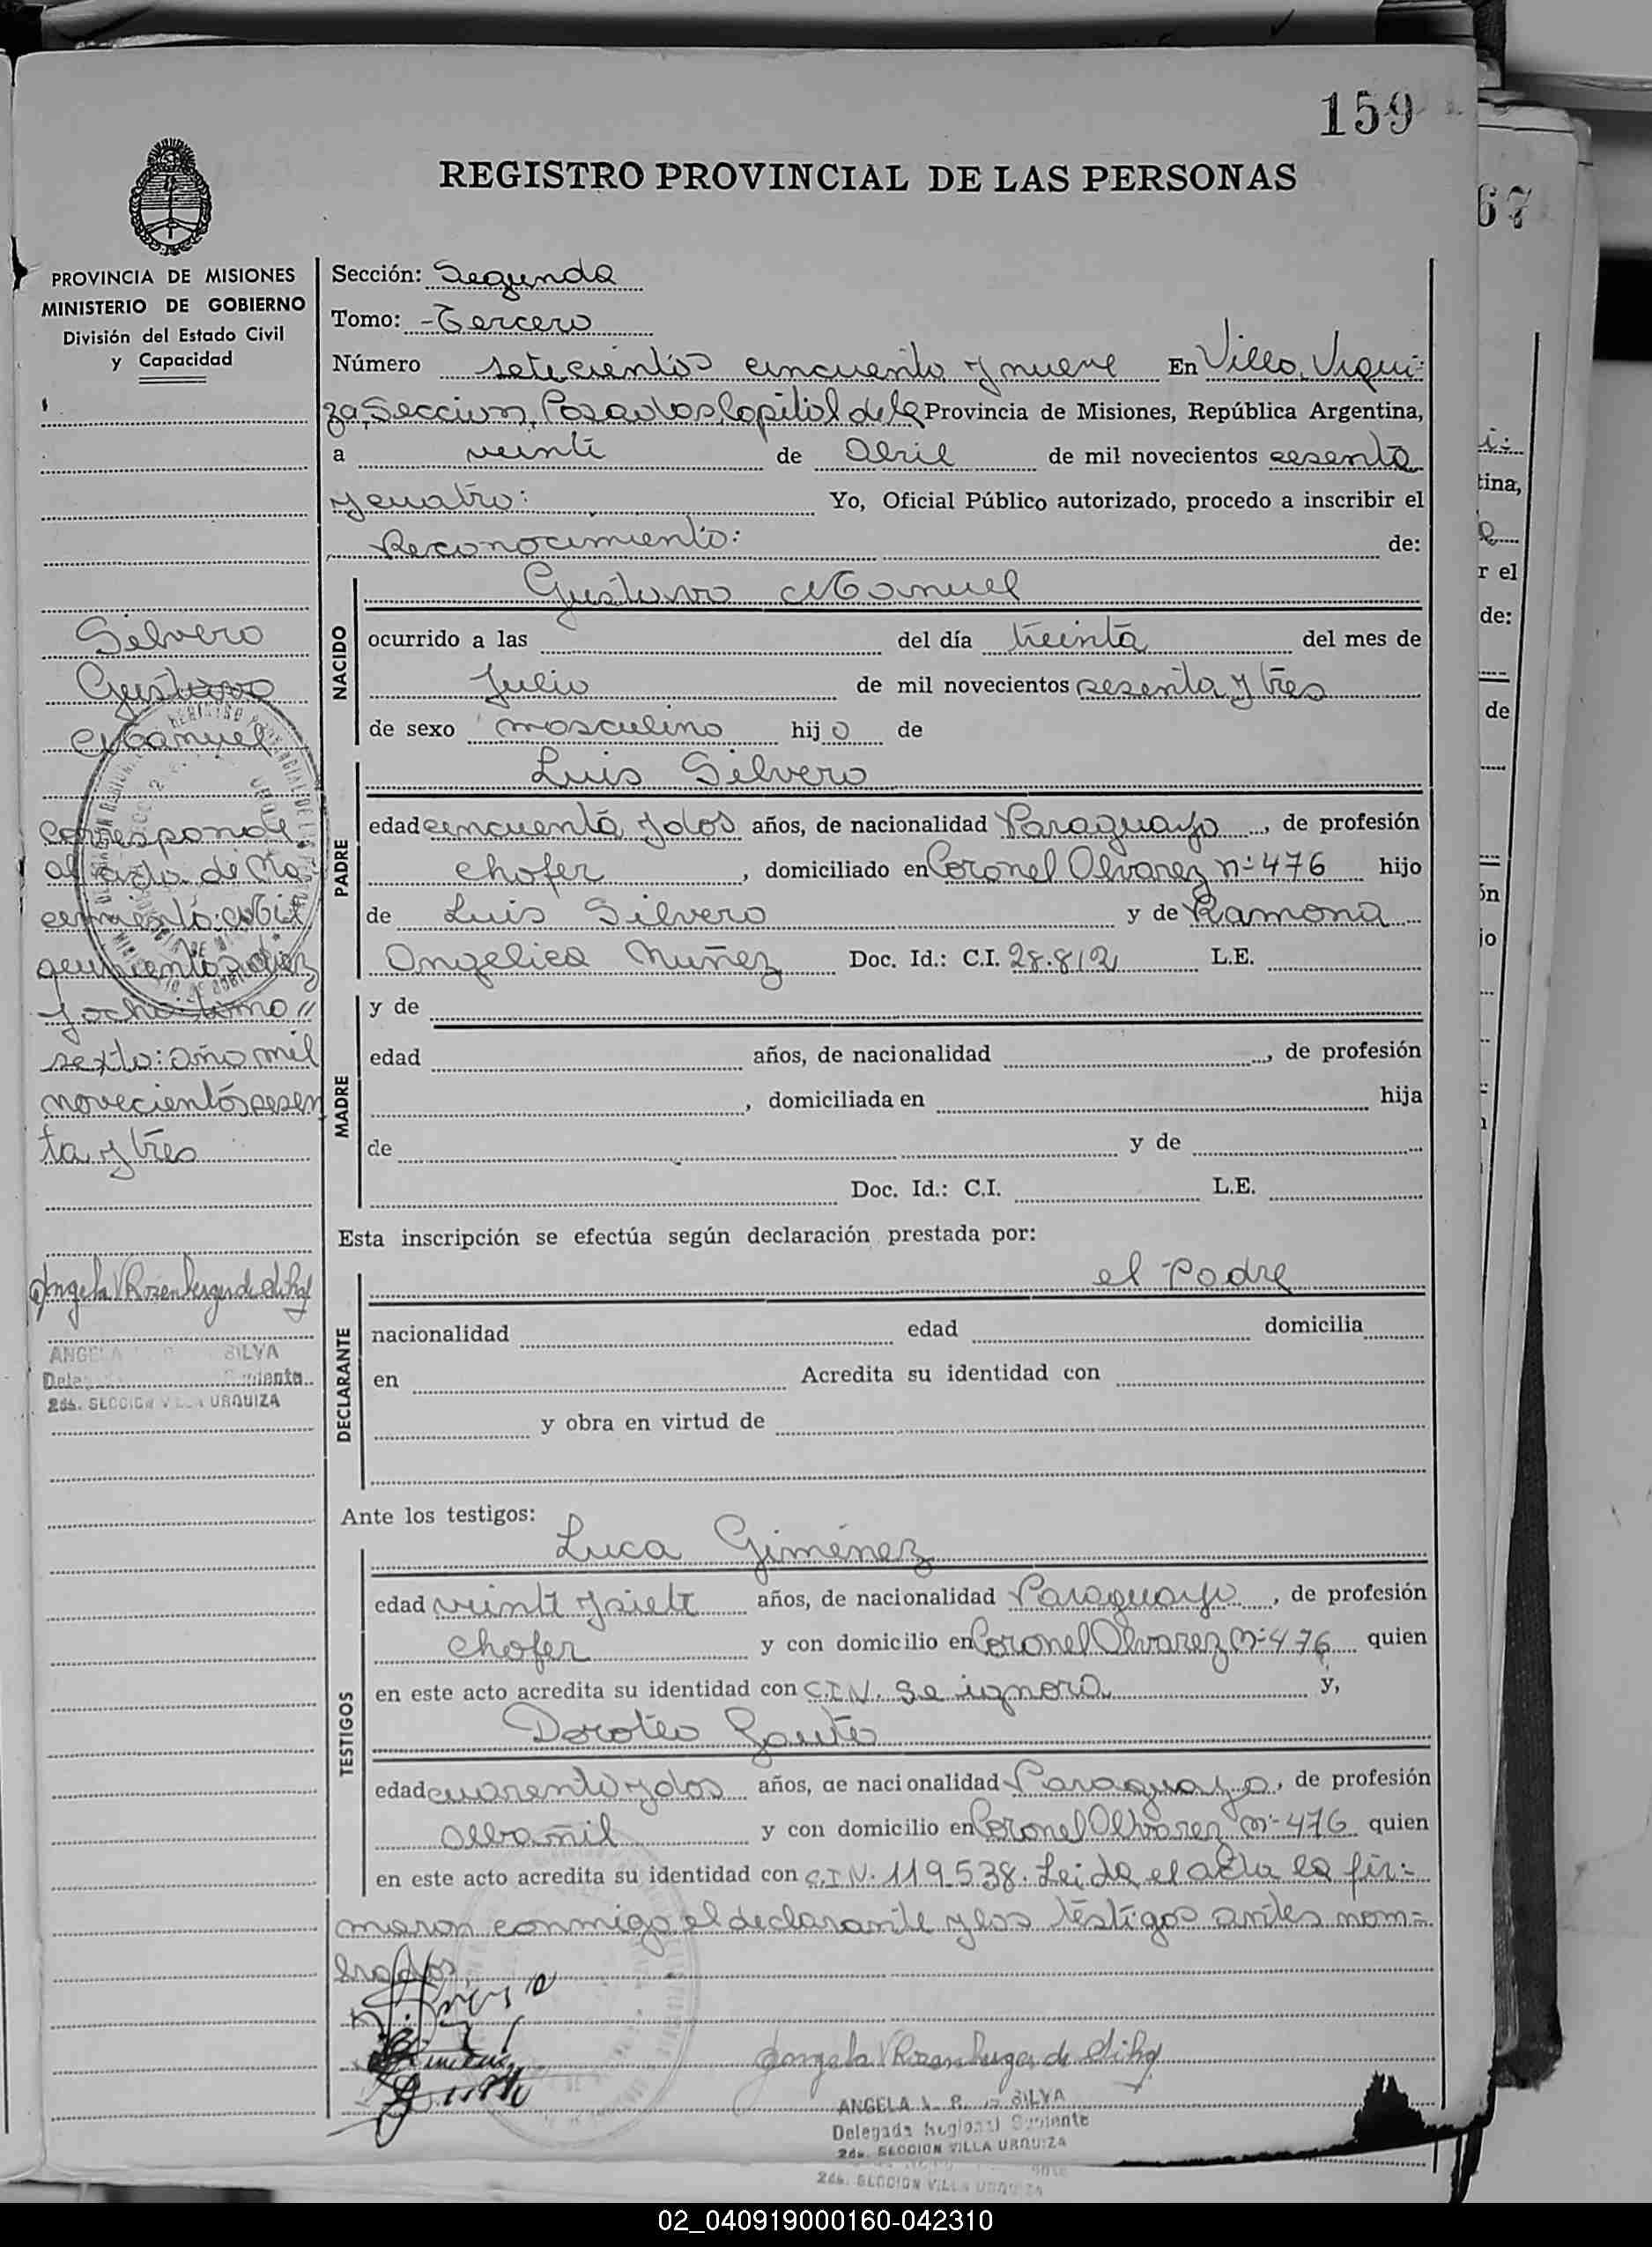 159
REGISTRO PROVINCIAL DE LAS PERSONAS
67
PROVINCIA DE MISIONES
MINISTERIO DE GOBIERNO
División del Estado Civil
y Capacidad
Silvero
Gustavo
Manuel
corresponde
al acta de Na-
cimiento: Mil
quinientos diez
y ocho: tomo "
sexto: año mil
novecientos sesen
ta y tres
Angela V Rozenberger de Silva
ANGELA SILVA
2da. SECCION VILLA URQUIZA
Sección: Segunda
Tomo: - Tercero
Número setecientos cincuenta y nueve En Villa Urqui-
za, Seccion, Posadas Capital de la Provincia de Misiones, República Argentina,
a veinte de Abril de mil novecientos sesenta
y cuatro: Yo, Oficial Público autorizado, procedo a inscribir el
Reconocimiento: de:
NACIDO
Gustavo Manuel
ocurrido a las del día treinta del mes de
Julio de mil novecientos sesenta y tres
de sexo masculino hijo de
PADRE
Luis Silvero
edad cincuenta y dos años, de nacionalidad Paraguayo, de profesión
chofer, domiciliado en Coronel Alvarez nº 476 hijo
de Luis Silvero y de Ramona
Angelica Nuñez Doc. Id.: C.I. 28.812 L.E.
MADRE
y de
edad años, de nacionalidad , de profesión
, domiciliada en hija
de y de
Doc. Id.: C.I. L.E.
Esta inscripción se efectúa según declaración prestada por:
DECLARANTE
el Padre
nacionalidad edad domicilia
en Acredita su identidad con
y obra en virtud de
Ante los testigos:
TESTIGOS
Luca Giménez
edad veinte y siete años, de nacionalidad Paraguayo, de profesión
chofer y con domicilio en Coronel Alvarez Nº 476 quien
en este acto acredita su identidad con C.I.N. se ignora y,
Doroteo
edad cuarenta y dos años, de nacionalidad Paraguayo, de profesión
albañil y con domicilio en Coronel Alvarez nº 476 quien
en este acto acredita su identidad con C.I.N. 119.538. Leida el acta la fir-
maron conmigo el declarante y los testigos antes nom-
brados,
Angela V Rozenberger de Silva
ANGELA V. R. DE SILVA
Delegada Regional Suplente
2da. SECCION VILLA URQUIZA
2da. SECCION VILLA URQUIZA
02_040919000160-042310